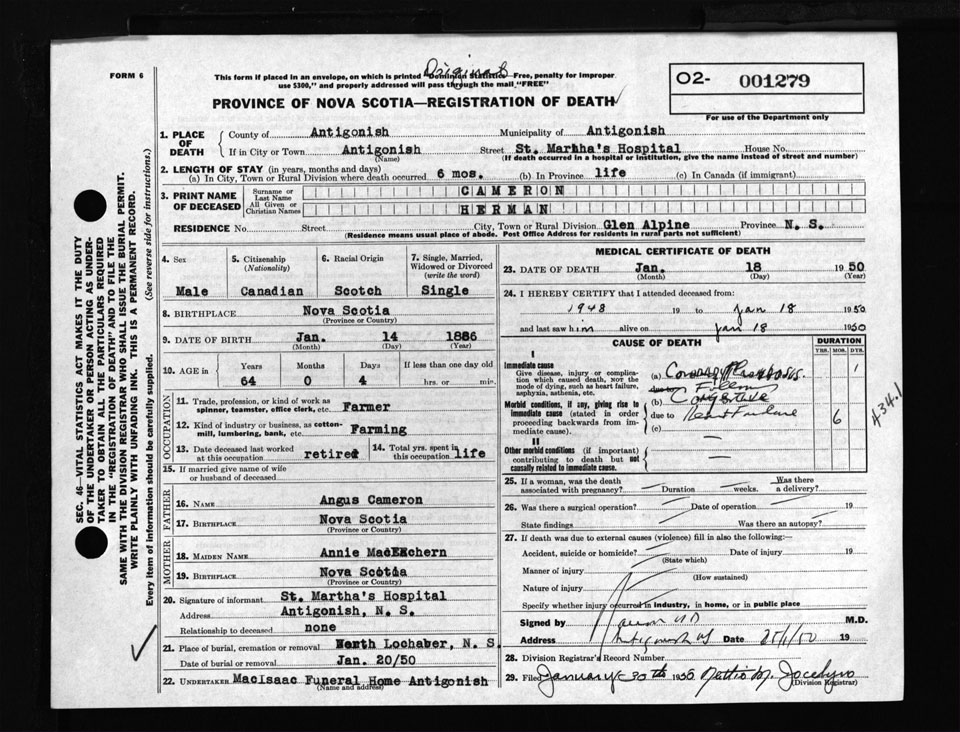 FORM 6
Original
This form if placed in an envelope, on which is printed "Dominion Statistics—Free, penalty for improper
use $300," and properly addressed will pass through the mail "FREE"
O2- 001279
For use of the Department only
PROVINCE OF NOVA SCOTIA—REGISTRATION OF DEATH
SEC. 46—VITAL STATISTICS ACT MAKES IT THE DUTY
OF THE UNDERTAKER OR PERSON ACTING AS UNDER-
TAKER TO OBTAIN ALL THE PARTICULARS REQUIRED
IN THE "REGISTRATION OF DEATH" AND TO FILE THE
SAME WITH THE DIVISION REGISTRAR WHO SHALL ISSUE THE BURIAL PERMIT.
WRITE PLAINLY WITH UNFADING INK. THIS IS A PERMANENT RECORD.
Every item of information should be carefully supplied. (See reverse side for instructions.)
1. PLACE OF DEATH County of Antigonish Municipality of Antigonish
If in City or Town Antigonish Street St. Martha's Hospital House No.
(Name) (If death occurred in a hospital or institution, give the name instead of street and number)
2. LENGTH OF STAY (in years, months and days)
(a) In City, Town or Rural Division where death occurred 6 mos. (b) In Province life (c) In Canada (if immigrant)
3. PRINT NAME OF DECEASED Surname or Last Name CAMERON
All Given or Christian Names HERMAN
RESIDENCE No. Street City, Town or Rural Division Glen Alpine Province N. S.
(Residence means usual place of abode. Post Office Address for residents in rural parts not sufficient)
4. Sex 5. Citizenship (Nationality) 6. Racial Origin 7. Single, Married, Widowed or Divorced (write the word)
Male Canadian Scotch Single
8. BIRTHPLACE Nova Scotia
(Province or Country)
9. DATE OF BIRTH Jan. 14 1886
(Month) (Day) (Year)
10. AGE in Years Months Days If less than one day old
64 0 4 hrs. or min.
OCCUPATION
11. Trade, profession, or kind of work as
spinner, teamster, office clerk, etc. Farmer
12. Kind of industry or business, as cotton-
mill, lumbering, bank, etc. Farming
13. Date deceased last worked at this occupation retired 14. Total yrs. spent in this occupation life
15. If married give name of wife
or husband of deceased
FATHER
16. NAME Angus Cameron
17. BIRTHPLACE Nova Scotia
(Province or Country)
MOTHER
18. MAIDEN NAME Annie MacEachern
19. BIRTHPLACE Nova Scotia
(Province or Country)
20. Signature of informant St. Martha's Hospital
Address Antigonish, N. S.
Relationship to deceased none
21. Place of burial, cremation or removal North Lochaber, N. S.
Date of burial or removal Jan. 20/50
22. UNDERTAKER MacIsaac Funeral Home Antigonish
(Name and address)
MEDICAL CERTIFICATE OF DEATH
23. DATE OF DEATH Jan. 18 1950
(Month) (Day) (Year)
24. I HEREBY CERTIFY that I attended deceased from:
1948 19 to Jan 18 1950
and last saw him alive on Jan 18 1950
CAUSE OF DEATH DURATION
YRS. MOS. DYS.
I
Immediate cause
Give disease, injury or complica-
tion which caused death, NOT the
mode of dying, such as heart failure,
asphyxia, asthenia, etc.
(a) Coronary Thrombosis 1
Morbid conditions, if any, giving rise to
immediate cause (stated in order
proceeding backwards from im-
mediate cause).
(b) Congestive
due to Heart Failure 6
(c)
434.1
II
Other morbid conditions (if important)
contributing to death but not
causally related to immediate cause.
25. If a woman, was the death
associated with pregnancy? Duration weeks. Was there a delivery?
26. Was there a surgical operation? Date of operation 19
State findings Was there an autopsy?
27. If death was due to external causes (violence) fill in also the following:—
Accident, suicide or homicide? Date of injury 19
(State which)
Manner of injury
(How sustained)
Nature of injury
Specify whether injury occurred in industry, in home, or in public place
Signed by M.D.
Address Antigonish NS Date 25/1/50 19
28. Division Registrar's Record Number
29. Filed January 30th 1950 Nettie M. Jocelyn
(Division Registrar)